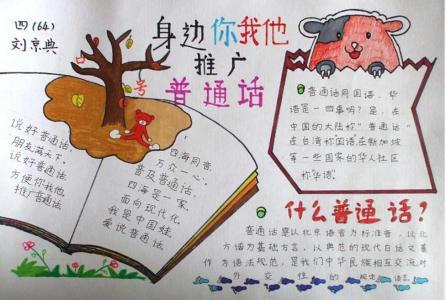 四(64)
刘京典
身边你我他
推广
普通话
说好普通话,
朋友满天下,
说好普通话
方便你我他
推广普通话
四海同音,
万众一心,
普及普通话,
四海是一家,
面向现代化,
我是中国娃,
爱说普通话.
普通话同国语、华
语是一回事吗?是,在
中国的大陆称"普通话"
在台湾称国语在新加坡
等一些国家的华人社区
称华语.
什么普通话?
普通话是以北京语音为标准音,以北
方话为基础方言,以典范的现代白话文著
作为语法规范,是我们中华民族相互交流对
外交往的规定语言